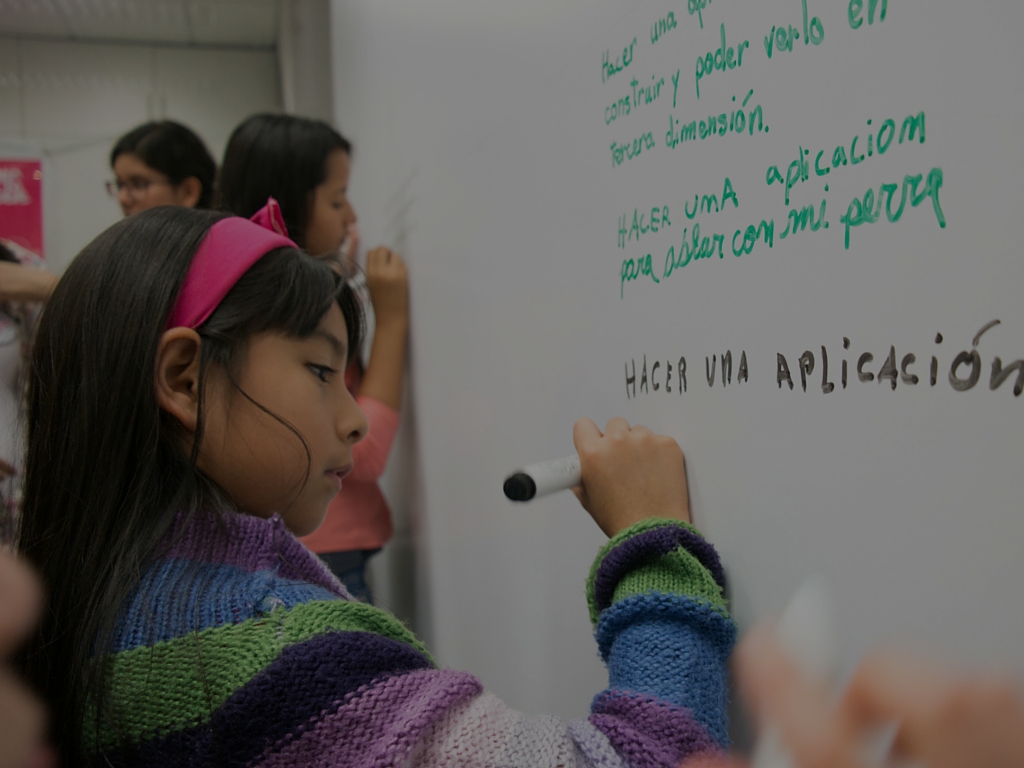 Hacer una
construir y poder verlo en
tercera dimensión.
HACER UnA aplicaciom
para ablar con mi perra
HACER UNA APLICACIÓN